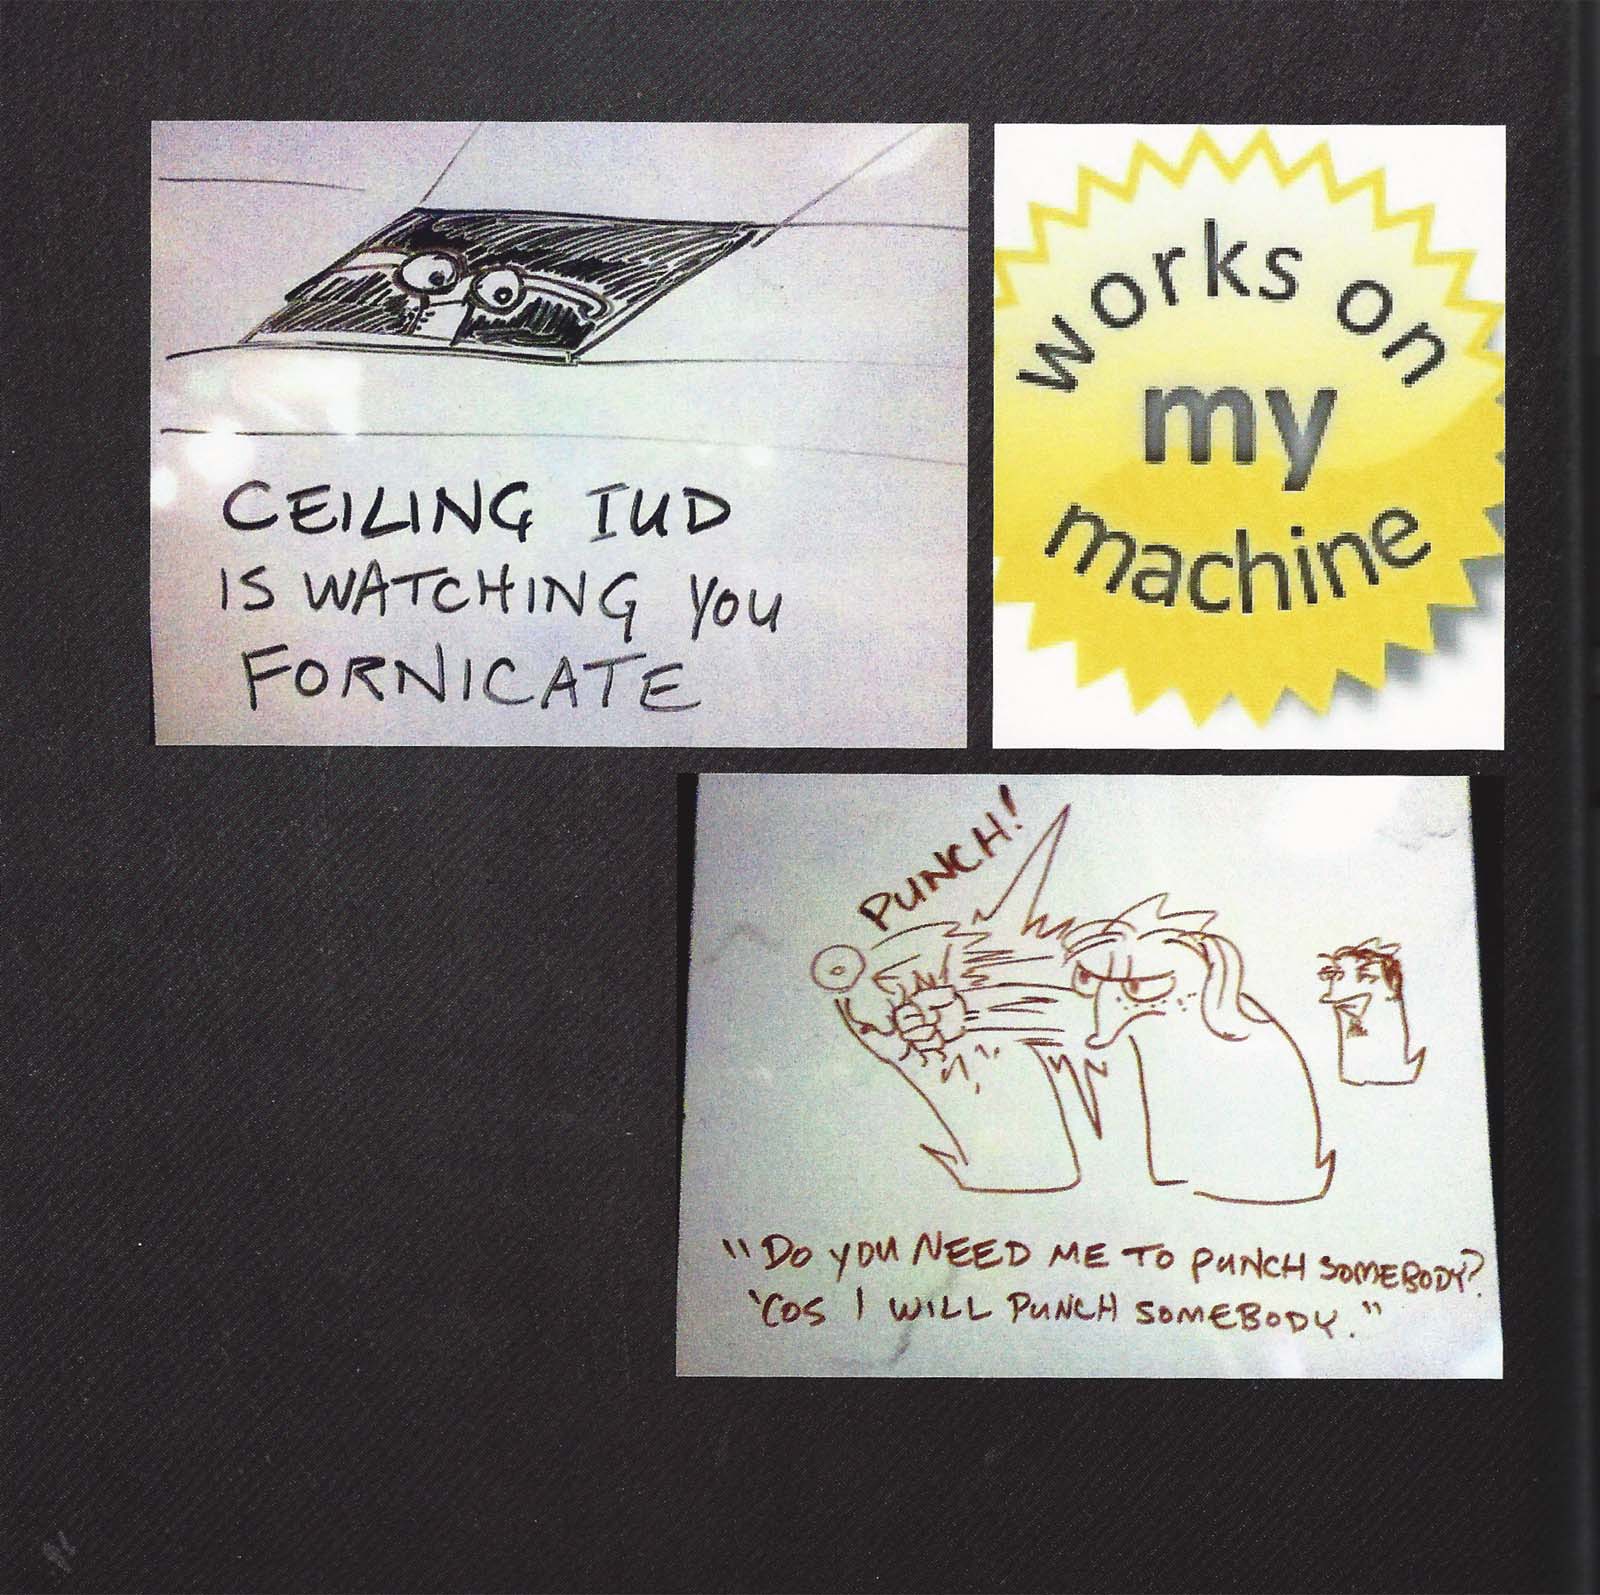 CEILING IUD
IS WATCHING YOU
FORNICATE
works on
my
machine
PUNCH!
"DO YOU NEED ME TO PUNCH SOMEBODY?
'COS I WILL PUNCH SOMEBODY."